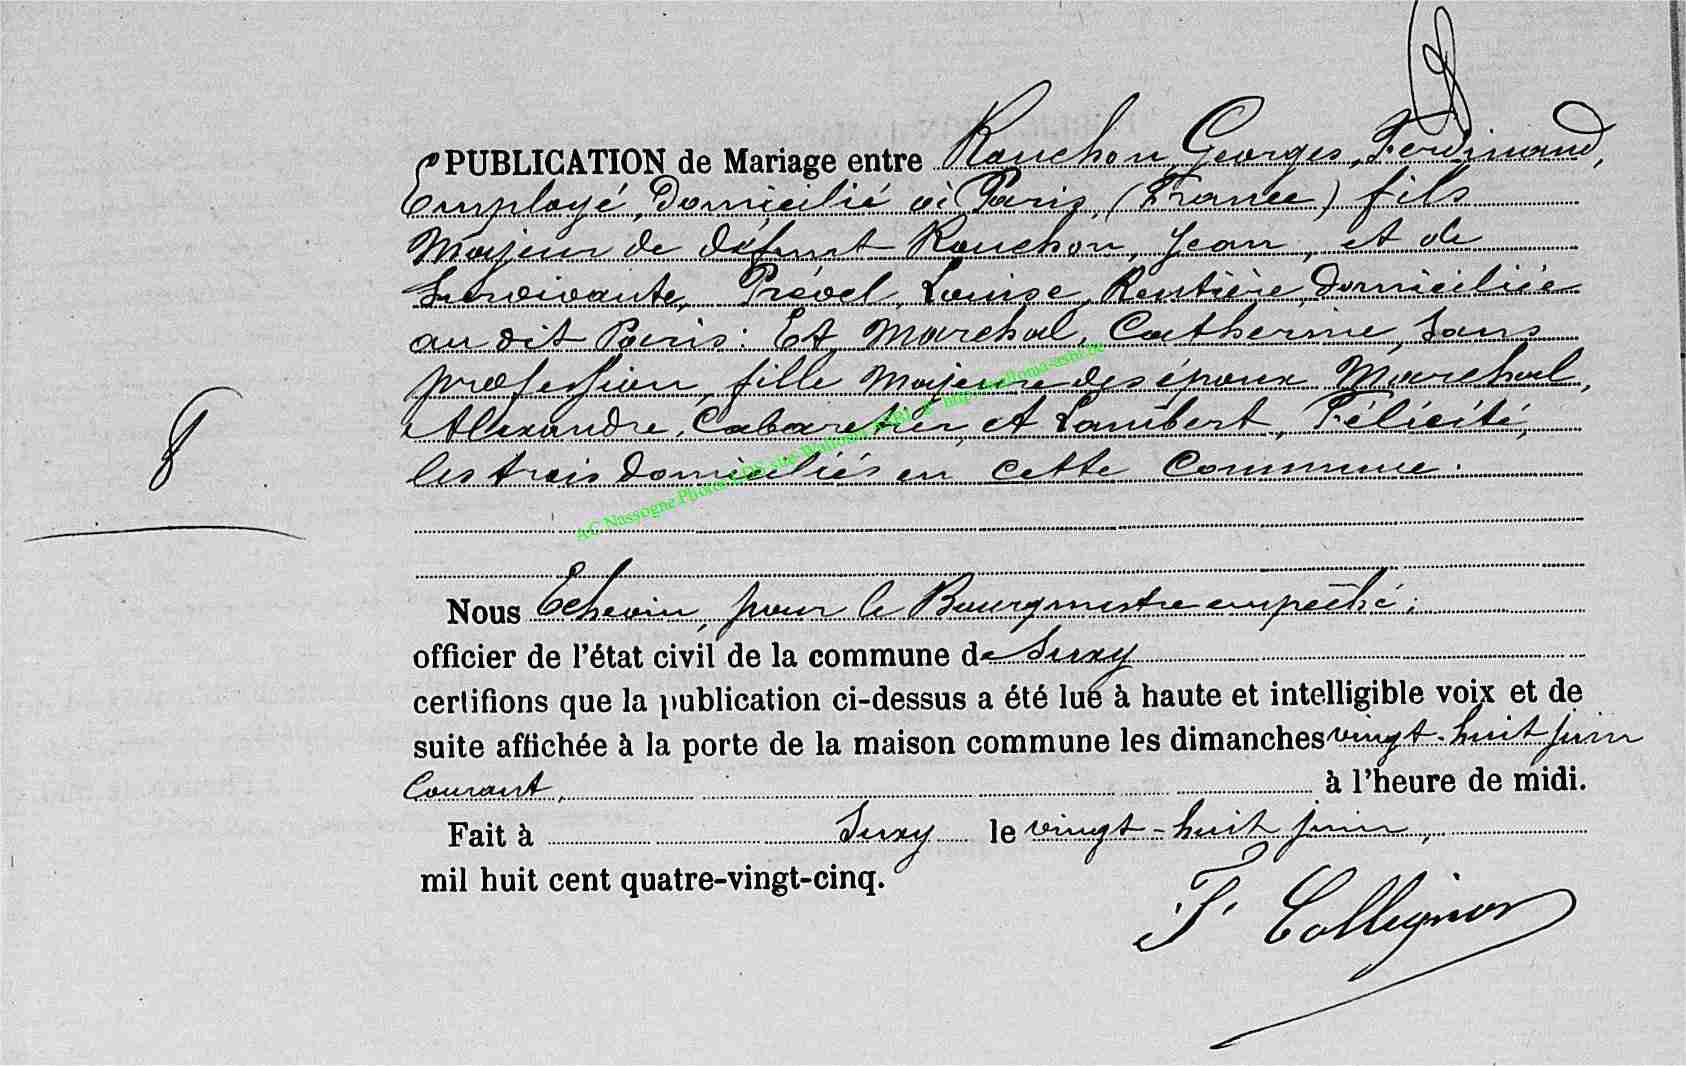 PUBLICATION de Mariage entre Rouchon, Georges, Ferdinand,
Employé, Domicilié à Paris, (France) fils
Majeur de défunt Rouchon, Jean, et de
Survivante, Prével, Louise, Rentière, domiciliée
au dit Paris : Et Marchal, Catherine, sans
profession, fille Majeure des époux Marchal,
Alexandre, Cabaretier, et Lambert, Félicité,
les trois domiciliés en cette Commune.
8
AC Nassogne Photos
Nous Echevin, pour le Bourgmestre empêché ;
officier de l'état civil de la commune de Suxy
certifions que la publication ci-dessus a été lue à haute et intelligible voix et de
suite affichée à la porte de la maison commune les dimanches vingt-huit juin
Courant, à l'heure de midi.
Fait à Suxy le vingt-huit juin,
mil huit cent quatre-vingt-cinq.
F. Collignon